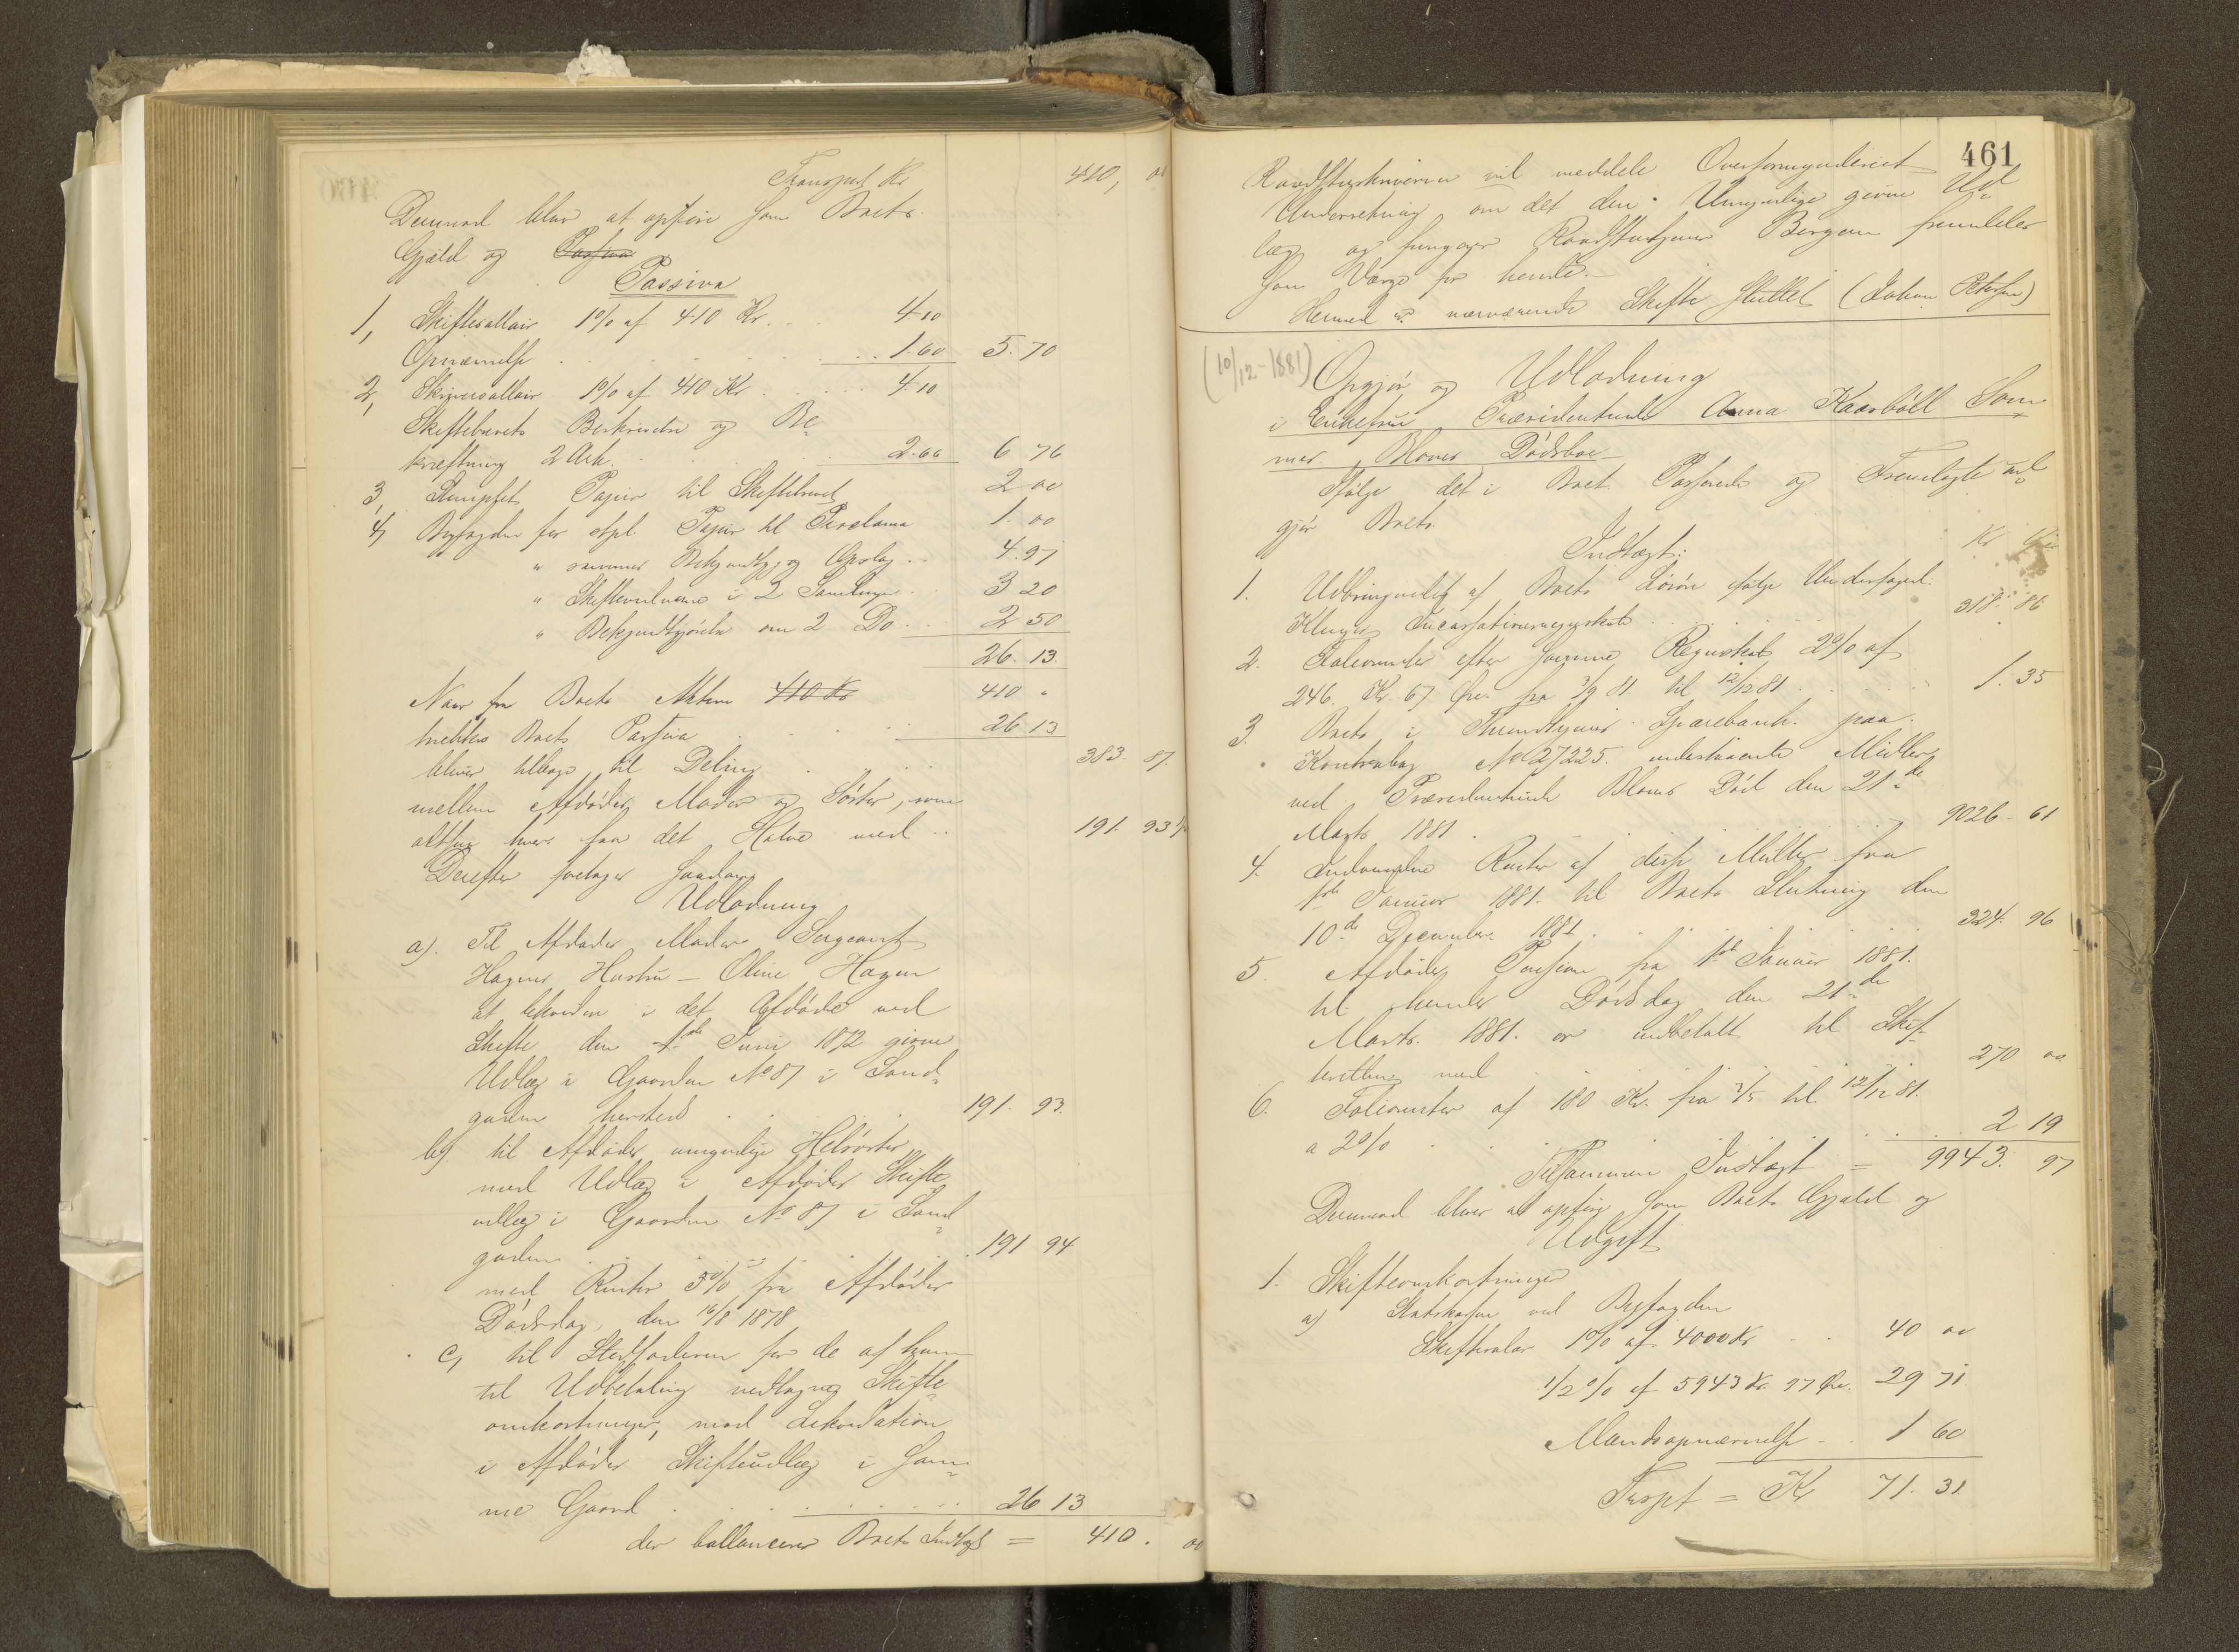 Transport Kr 410, 00
Derimod blev at opføre som Boets
Gjæld og Passiva
Passiva
1, Skiftesallair 1% af 410 Kr. . . 4.10
Opnævnelse . . . 1.60 5.70
2, Skriversallair 1% af 410 Kr . . . 4.10
Skiftebrevets Beskrivelse og Be-
kræftning 2 Ark . . . 2.66 6 76
3, Stemplet Papiir til Skiftebrevet 2 00
4, Byfogden for stpl. Papiir til Proclama 1. 00
" sammes Bekjendtg. og Opslag . . 4.97
" Skiftevidnerne i 2 Samlinger . . 3 20
" Bekjendtgjørelse om 2 Do . . . 2 50
26. 13.
Naar fra Boets Aktiva 410 Kr 410 "
trækkes Boets Passiva . . . 26 13
bliver tilbage til Deling . . . 383. 87.
mellem Afdødes Moder og Søster, som
altsaa hver faar det Halve med . . 191. 93½
Derefter foretages saadan
Udlodning
a). Til Afdødes Moder Sergeant
Hagens Hustru – Oline Hagen
at bekomme i det Afdøde ved
Skifte den 1ste Juni 1872 givne
Udlæg i Gaarden No 87 i Sand-
gaden hersteds . . . 191. 93.
b). til Afdødes umyndige Helsøster
med Udlæg i Afdødes Skifte-
udlæg i Gaarden No 87 i Sand-
gaden . . . 191 94
med Renter 5% fra Afdødes
Dødsdag, den 16/8 1878
c, til Stedfaderen for de af ham
til Udbetaling vedtagne Skifte-
omkostninger, mod Liknidation
i Afdødes Skifteudlæg i sam-
me Gaard . . . 26 13
der ballancerer Boets Indtægt = 410. 00
461
Raadstueskriveren vil meddele Overformynderiet
Underretning om det den Umyndige givne Ud-
læg og fungerer Raadstutjener Bergen fremdeles
som Værge for hende.
Hermed er nærværende Skifte sluttet (Johan Petersen)
(10/12-1881)
Opgjør og Udlodning
i Enkefrue Præsidentinde Anna Kaarbøll Som-
mer Bloms Dødsboe
Ifølge det i Boet Passerede og Fremlagte ud-
gjør Boets
Indtægt: Kr Øre
1. Udbringendet af Boets Løsøre ifølge Underfoged
Klings Incassationsregnskab . . . 318. 86
2. Foliorenter efter samme Regnskab 2% af
246 Kr. 67 Øre fra 3/9 81 til 12/12 81 . . . 1. 35
3. Boets i Throndhjems Sparebank paa
Kontrabog No 27225. indestaaende Midler
ved Præsidentinde Bloms Død den 21de
Marts 1881 . . . 9026 - 61
4. Indvundne Renter af disse Midler fra
1ste Januar 1881. til Boets Slutning den
10de December 1881 . . . 324. 96
5. Afdødes Pension fra 1ste Januar 1881.
til hendes Dødsdag den 21de
Marts. 1881. er indbetalt til Skif-
teretten med . . . 270 00
6. Foliorenter af 180 Kr. fra 3/5 til 12/12 81.
a 2% . . . 2 19
Tilsammen Indtægt = 9943. 97
Derimod bliver at opføre som Boets Gjæld og
Udgift
1. Skifteomkostninger
a) Statskassen ved Byfogden
Skiftesalær 1% af 4000 Kr . . 40 00
1/2% af 5943 Kr. 97 Øre. 29 71
Mændsopnævnelse . . 1 60
Trspt = Kr 71. 31.